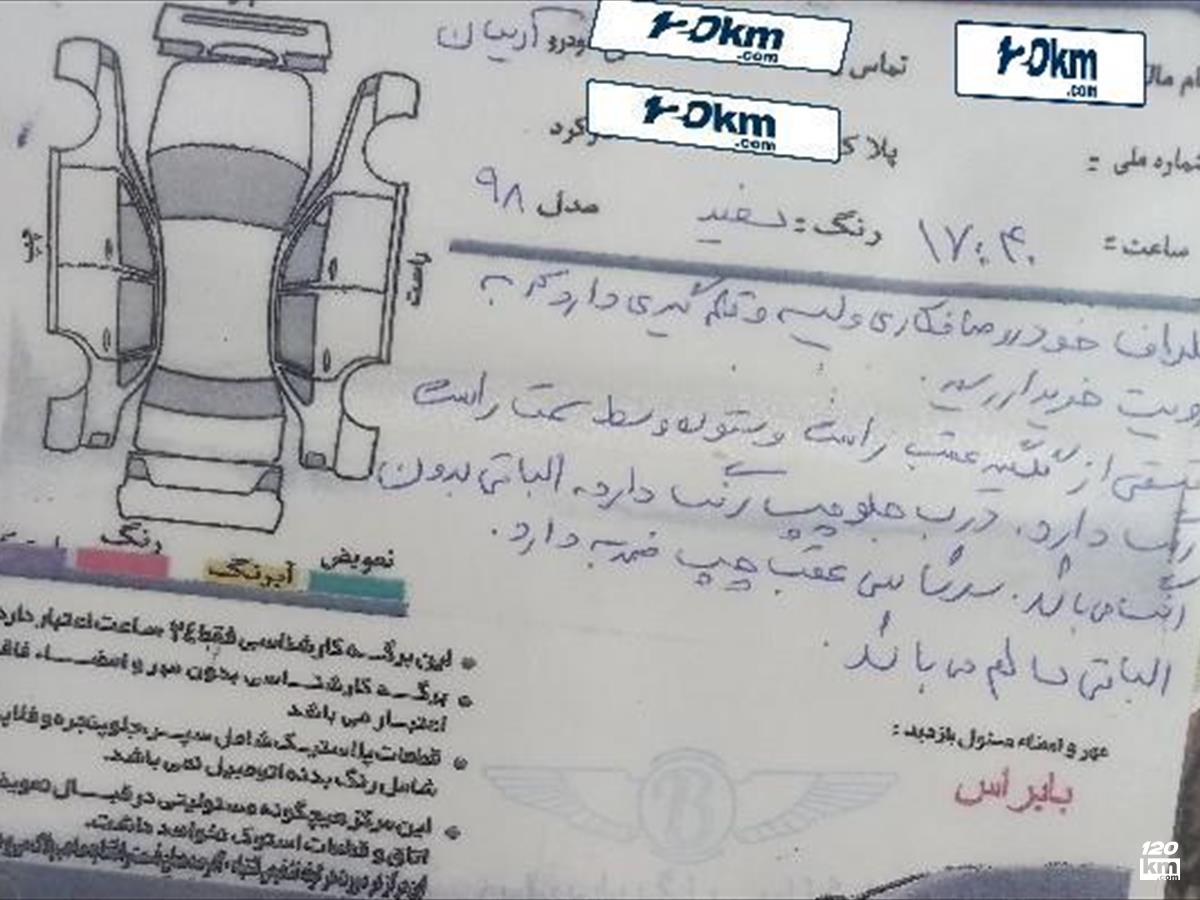 120km
.com
تماس
خودرو آریسان
120km
.com
120km
.com
شماره ملی :
پلاک
کارکرد
ساعت : ۱۷:۴۰
رنگ : سفید
مدل ۹۸
اطراف خودرو صافکاری و لیسه و قلم گیری دارد که به
رویت خریدار رسید.
قسمتی از گلگیر عقب راست و ستون وسط سمت راست
رنگ دارد. درب جلو چپ رنگ دارد. الباقی بدون
رنگ می باشد. سرشاسی عقب چپ ضربه دارد.
الباقی سالم می باشد.
مهر و امضاء مسئول بازدید :
بابراس
چپ
راست
رنگ
آبرنگ
تعویض
این برگـه کارشناسی فقط ۲۴ ساعت اعتبار دارد
برگـه کارشناسی بدون مهر و امضـاء فاقد
اعتبـار می باشد
قطعات پلاستیـک شامل سپـر، جلوپنجره و فلاپ
شامل رنگ بدنه اتومبیل نمی باشد.
این مرکز هیچگونه مسئولیتی در قبـال تعویض
اتاق و قطعات استوک نخواهد داشت.
B
120
km
.com